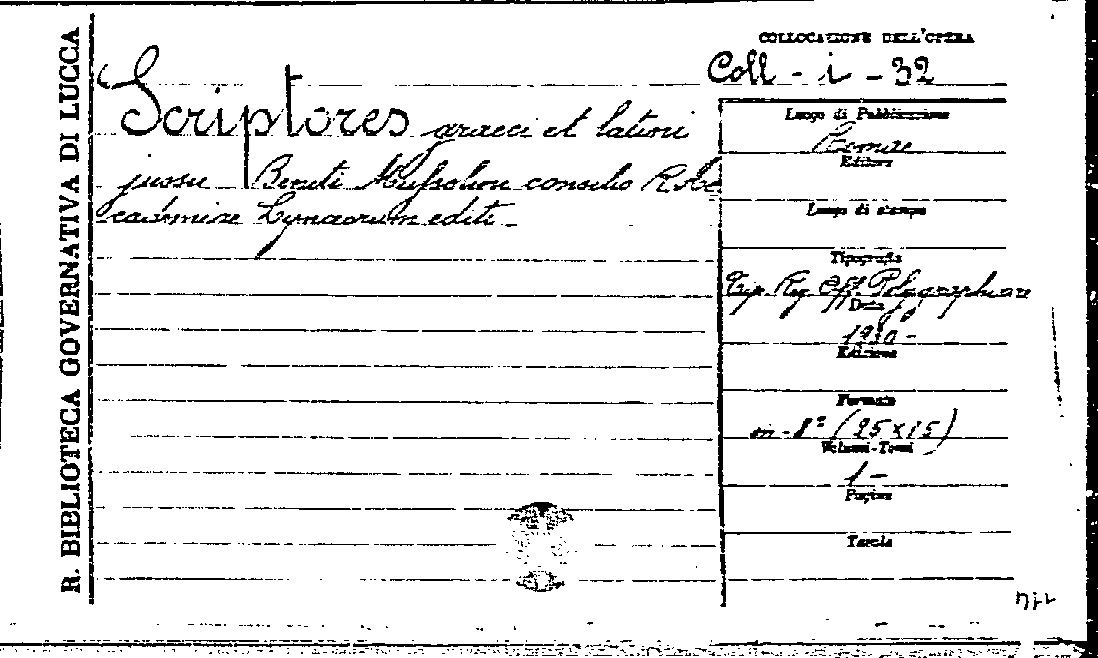 R. BIBLIOTECA GOVERNATIVA DI LUCCA
COLLOCAZIONE DELL'OPERA
Coll - i - 32
Scriptores graeci et latini
jussu Beniti Mussolini consilio R.
academiae Lynceorum editi -
Luogo di Pubblicazione
Romae
Editore
Luogo di stampa
Tipografia
Typ. Reg. Off. Polygraphicae
Data
1930 -
Edizione
Formato
in-8° (25x15)
Volumi-Tomi
1 -
Pagine
Tavole